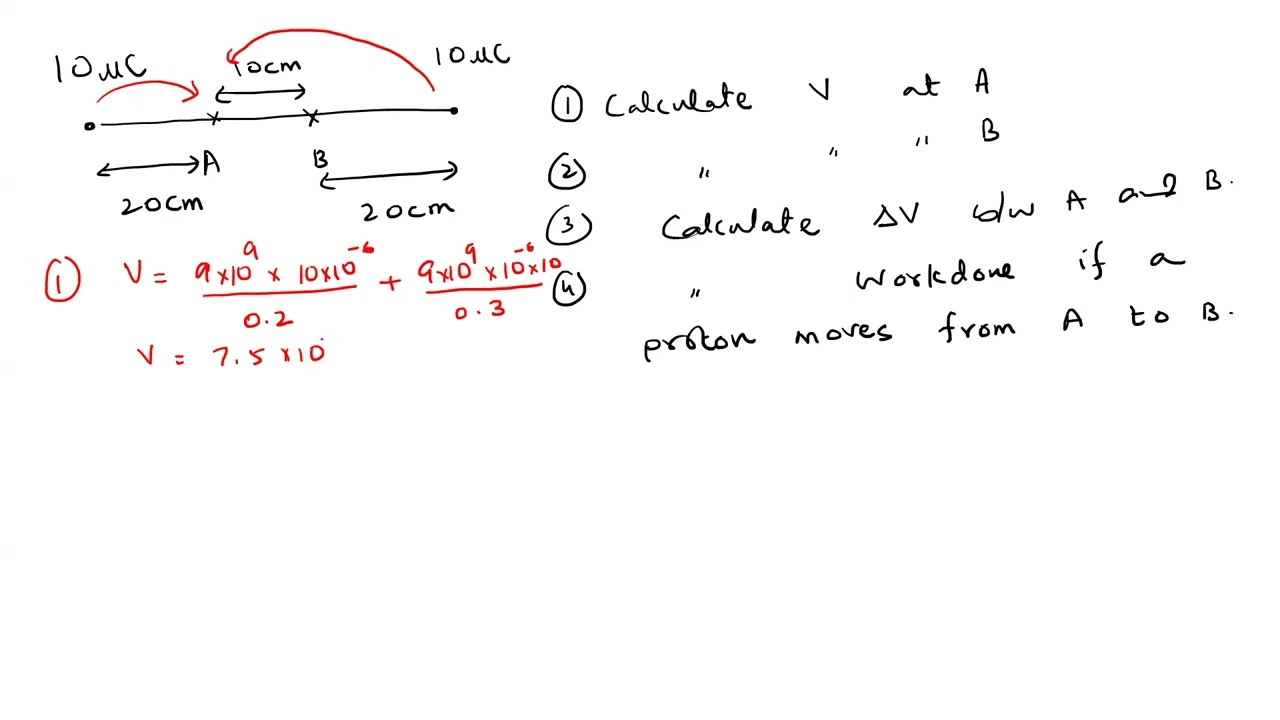 10 μC
10cm
10 μC
A
B
20cm
20cm
① Calculate V at A
② " " " B
③ Calculate ΔV b/w A and B.
④ " workdone if a
proton moves from A to B.
① V = 9×10⁹ × 10×10⁻⁶ / 0.2 + 9×10⁹ × 10⁻⁶×10 / 0.3
V = 7.5 ×10